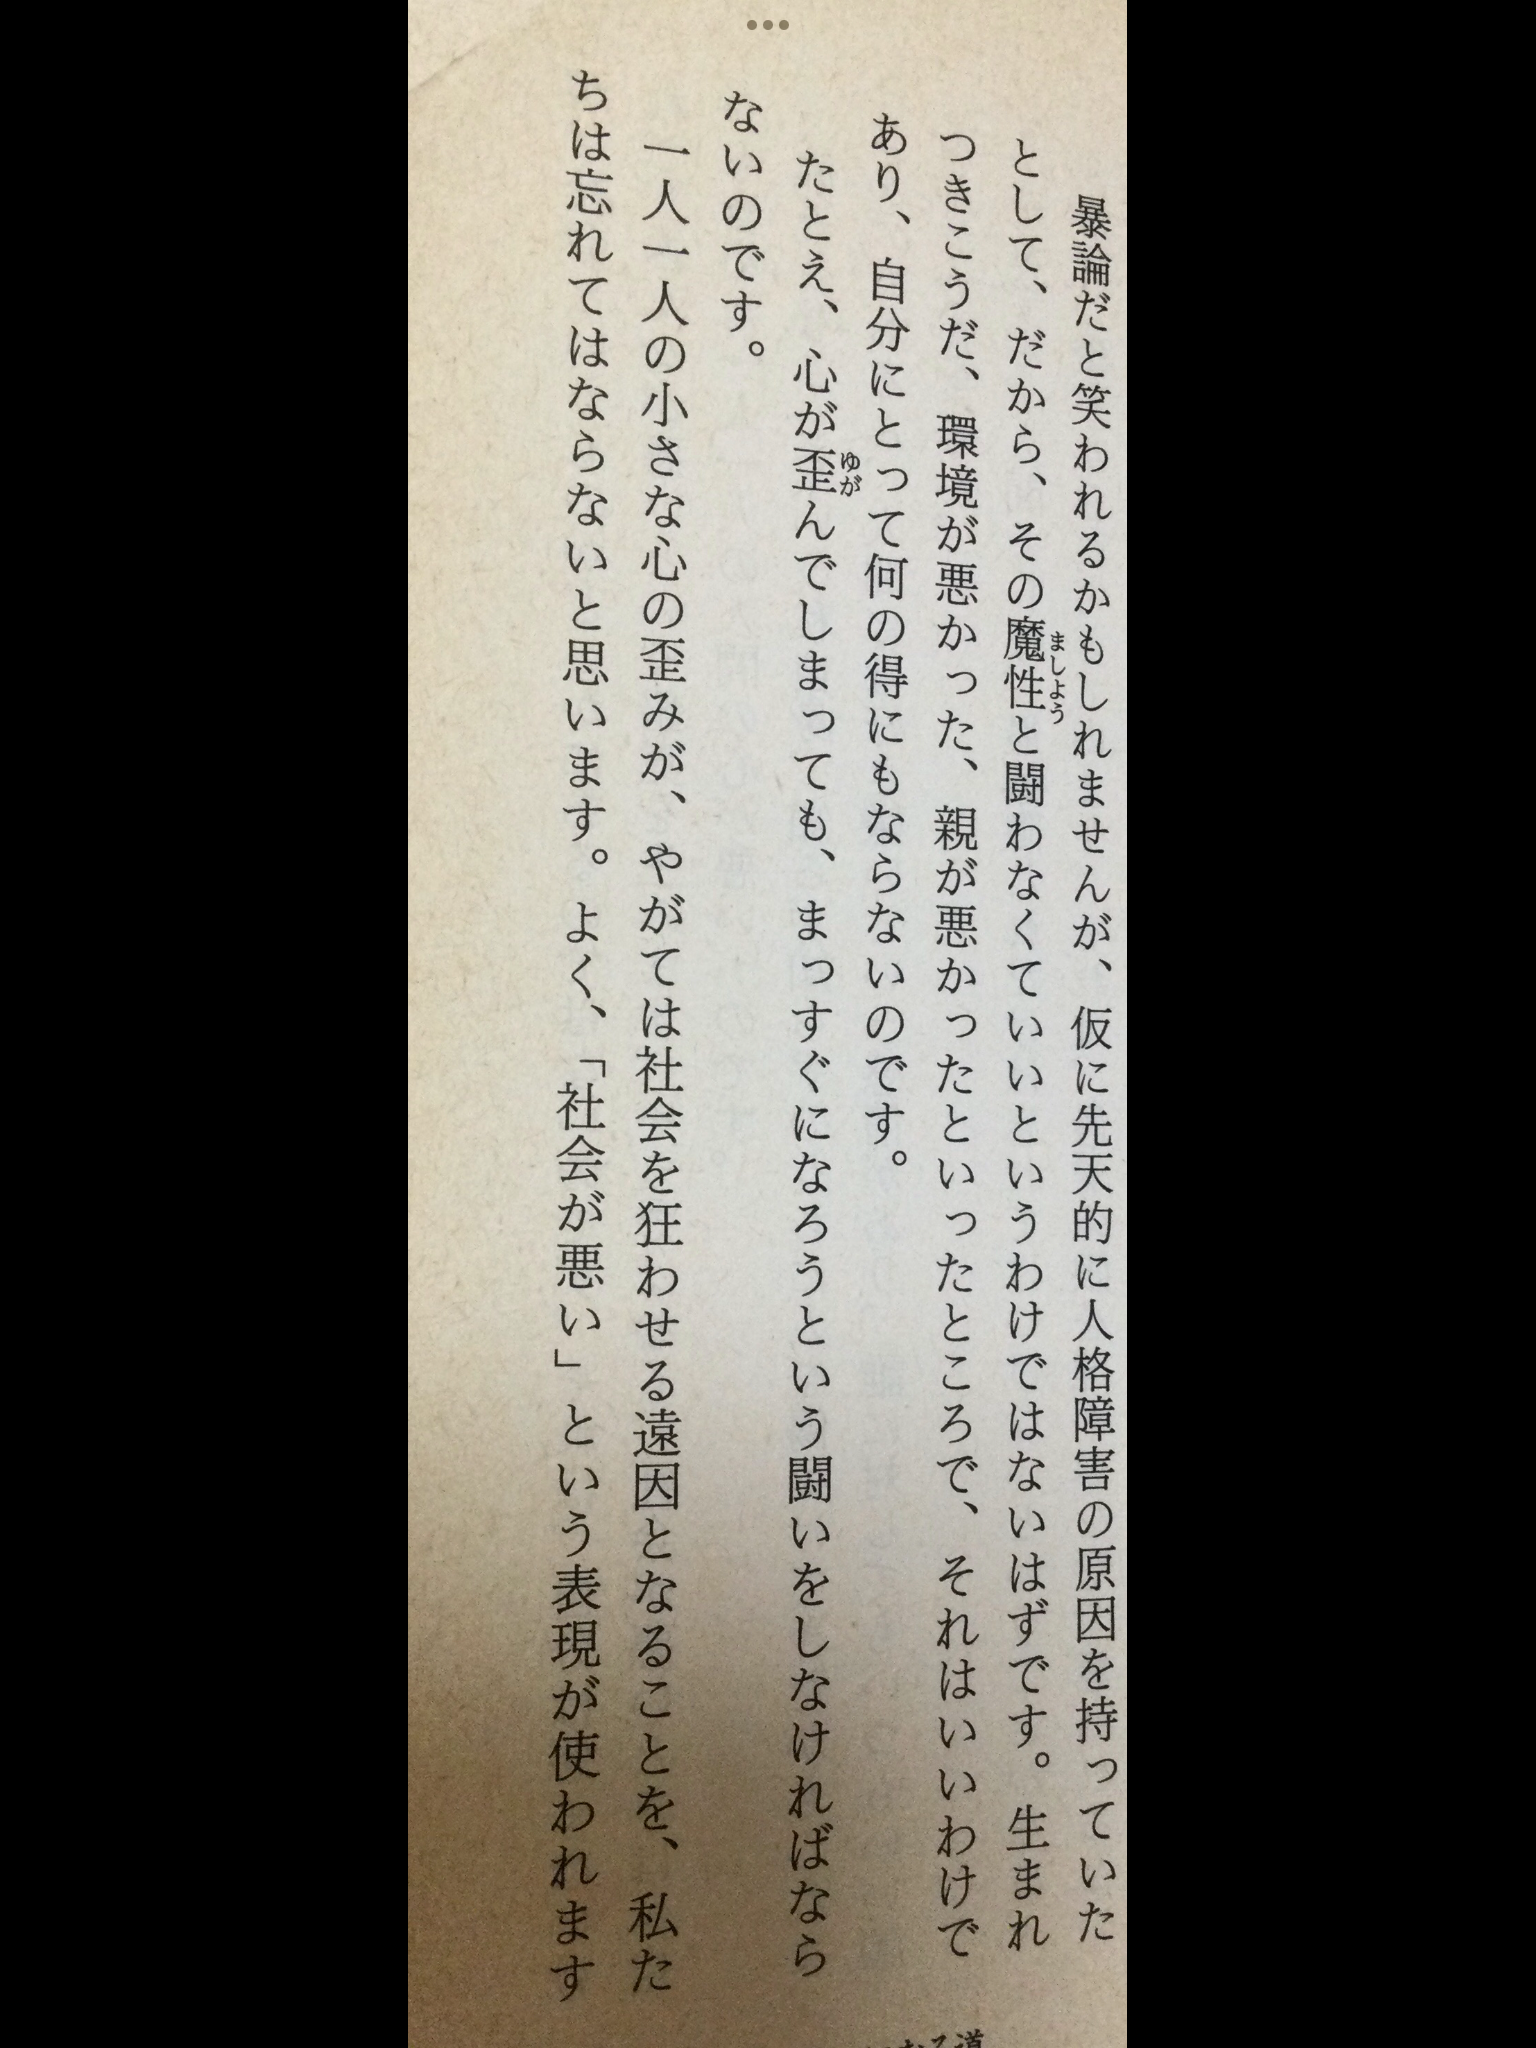 暴論だと笑われるかもしれませんが、仮に先天的に人格障害の原因を持っていた
として、だから、その魔性と闘わなくていいというわけではないはずです。生まれ
ましよう
つきこうだ、環境が悪かった、親が悪かったといったところで、それはいいわけで
あり、自分にとって何の得にもならないのです。
たとえ、心が歪んでしまっても、まっすぐになろうという闘いをしなければなら
ゆが
ないのです。
一人一人の小さな心の歪みが、やがては社会を狂わせる遠因となることを、私た
ちは忘れてはならないと思います。よく、「社会が悪い」という表現が使われます